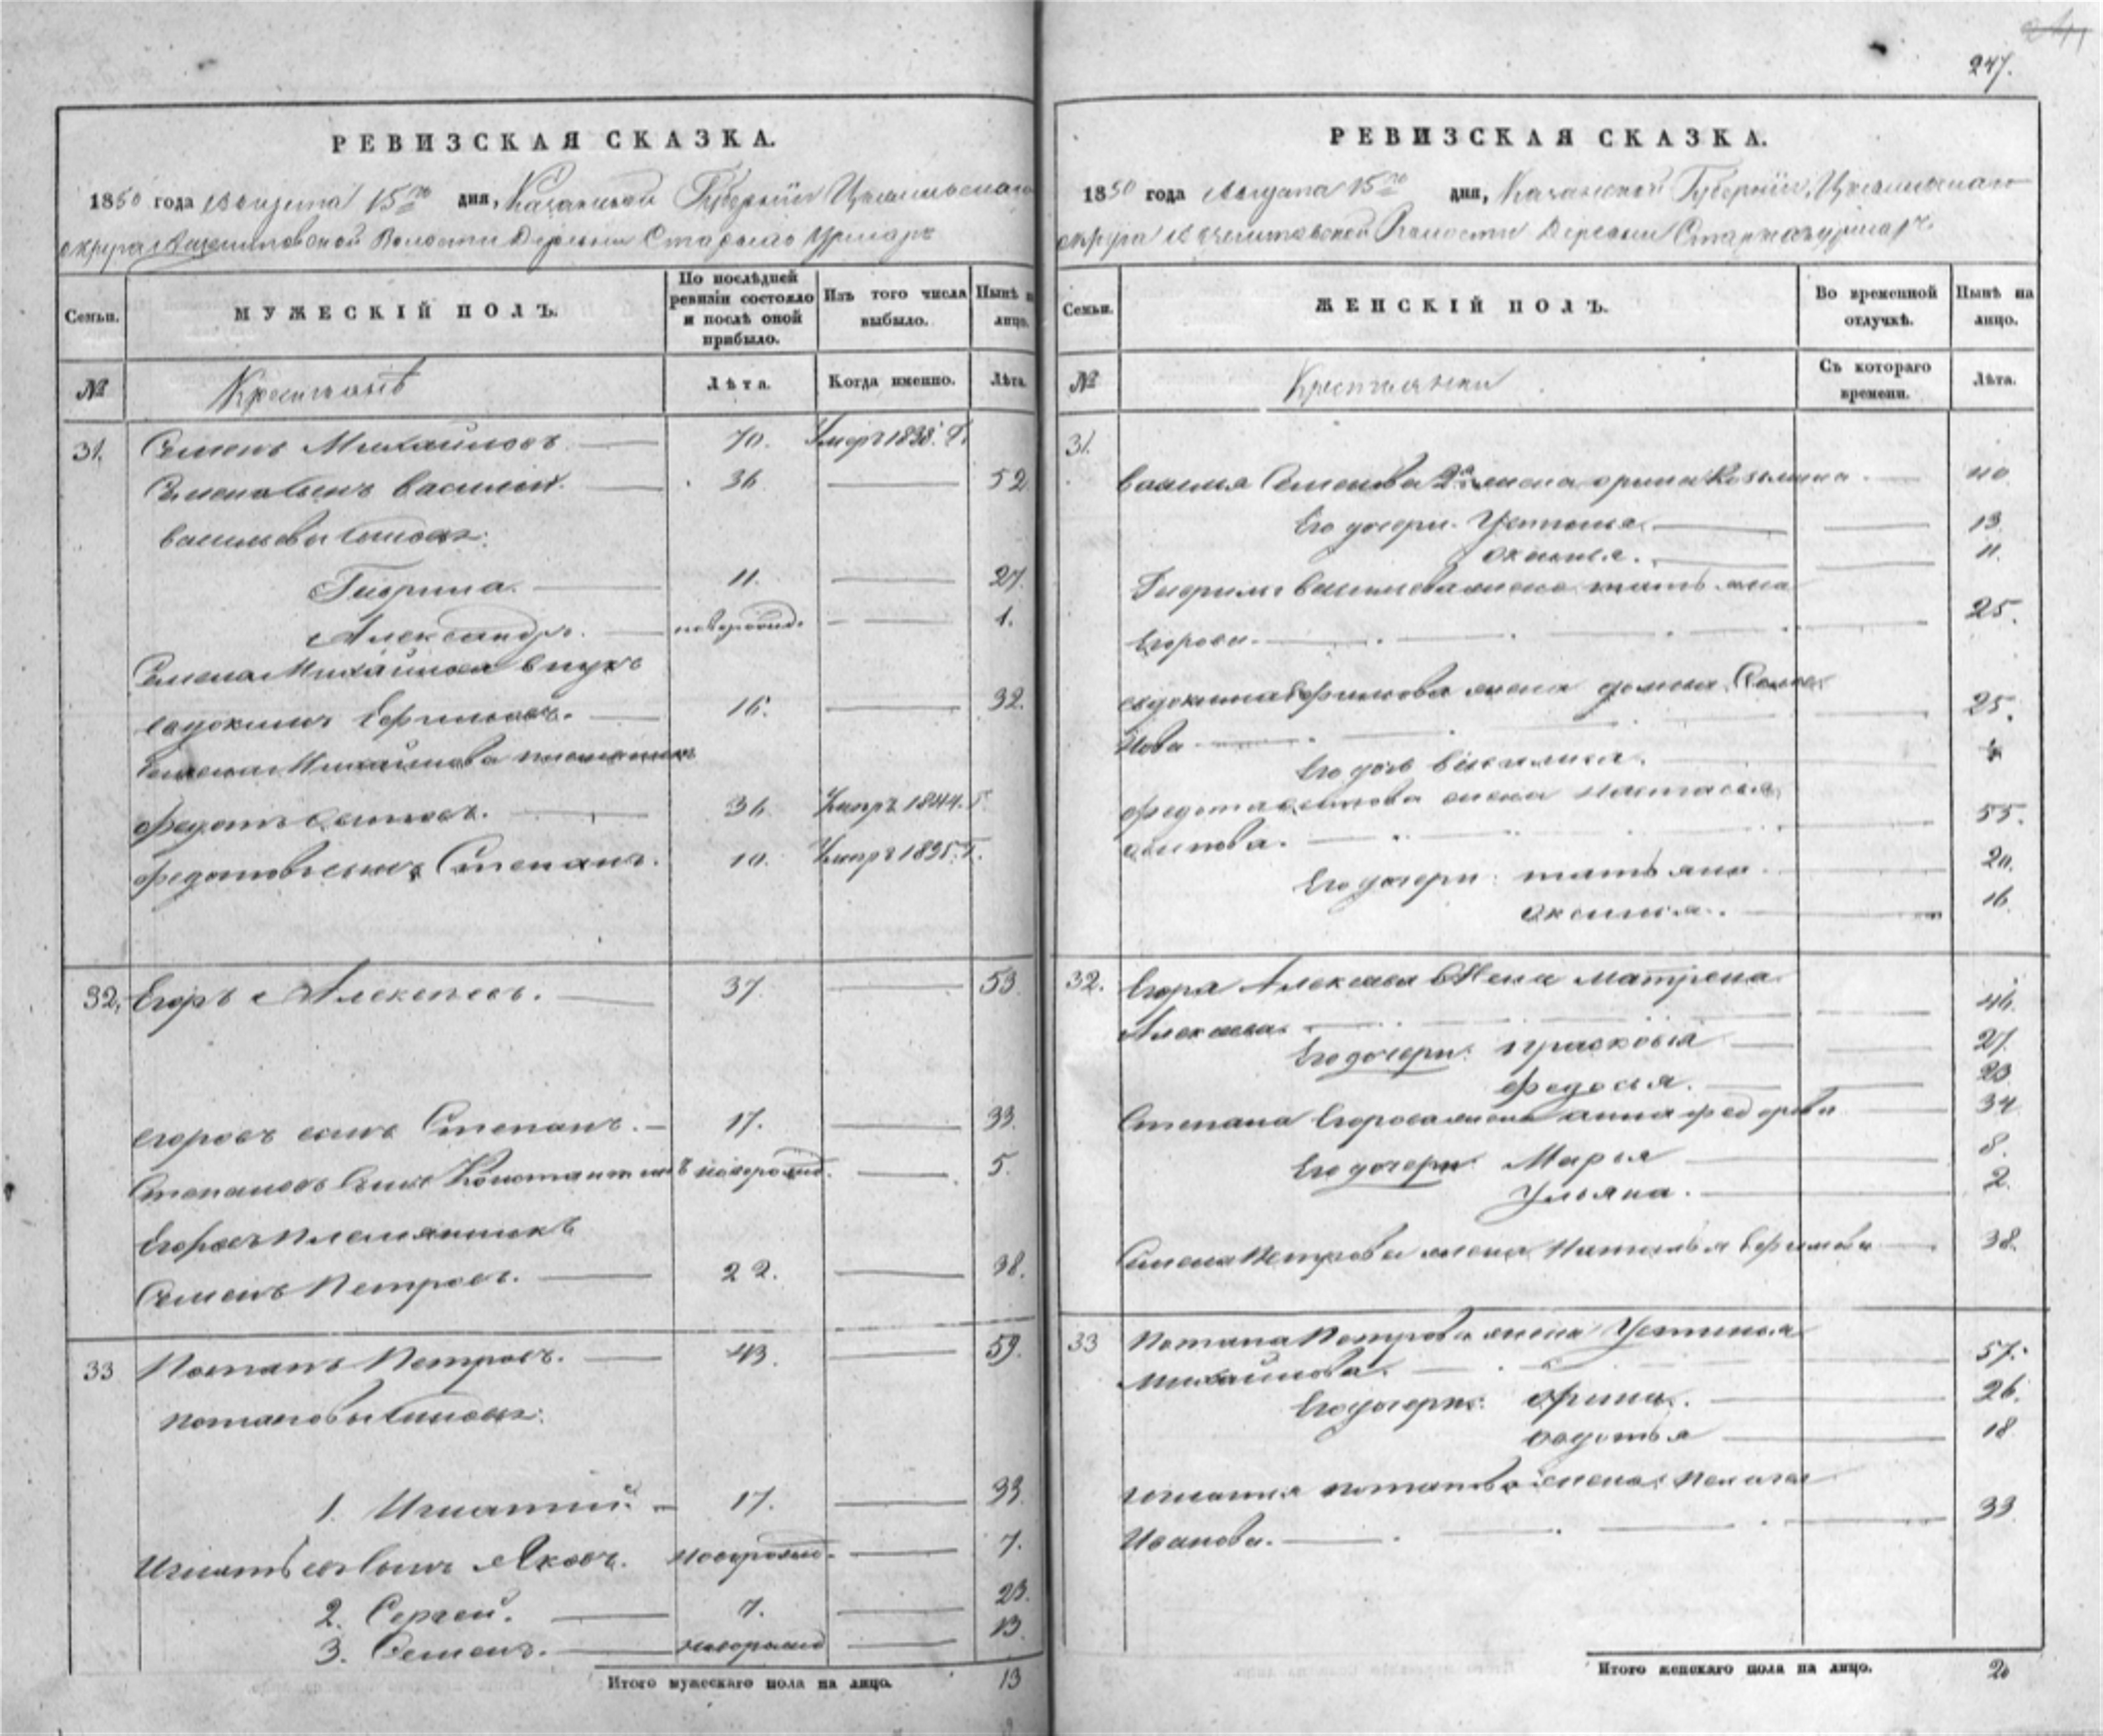 247.
РЕВИЗСКАЯ СКАЗКА.
1850 года Августа 15го дня, Казанской Губернiи Цивильскаго
округа Волости Деревни Стараго Урмаръ
Семьи.
МУЖЕСКIЙ ПОЛЪ.
По послѣдней ревизiи состояло и послѣ оной прибыло.
Изъ того числа выбыло.
Нынѣ на лицо.
№
Крестьянъ
Лѣта.
Когда именно.
Лѣта.
31. Семенъ Михайловъ. 70. Умеръ 1838. Г.
Семеновъ сынъ Василiй. 36 52
Васильевы сыновья:
Гаврила. 11. 27.
Александръ. новорожд. 1.
Семена Михайлова внукъ
Евдокимъ Ефимовъ. 16. 32.
Семена Михайлова племянникъ
Федотъ 36 Умеръ 1844. Г.
Федотовъ сынъ Степанъ. 10. Умеръ 1835. Г.
32. Егоръ Алексеевъ. 37. 53
Егоровъ сынъ Степанъ. 17. 33.
Степановъ сынъ Константинъ новорожд. 5.
Егоровъ племянникъ
Семенъ Петровъ. 22. 38.
33 Потапъ Петровъ. 43. 59.
Потаповы сыновья:
1. Игнатiй. 17. 33.
Игнатьевъ сынъ Яковъ. новорожд. 7.
2. Сергей. 7. 23.
3. Семенъ. новорожд 13.
Итого мужескаго пола на лицо. 13
РЕВИЗСКАЯ СКАЗКА.
1850 года Августа 15го дня, Казанской Губернiи, Цивильскаго
округа Волости Деревни Стараго урмаръ.
Семьи.
ЖЕНСКIЙ ПОЛЪ.
Во временной отлучкѣ.
Нынѣ на лицо.
№
Крестьянки
Съ котораго времени.
Лѣта.
31.
Василья Семенова 2я жена орина Козьмина 40
Его дочери. Устинья 13
11.
Гаврилы Васильева жена татьяна
Егорова. 25.
Евдокима Ефимова жена домна
25.
Его дочь Василиса.
Федота жена Настасья
55.
Его дочери: татьяна 20.
Аксинья. 16.
32. Егора Алексеева жена Матрена
Алексеева. 46.
Его дочери: Прасковья 27.
Федосья. 23
Степана Егорова жена анна федорова 34
Его дочери Марья 8.
Ульяна. 2.
Семена Петрова жена Наталья Ефимова 38.
33 Потапа Петрова жена Устинья
Михайлова. 57.
Его дочери: Орина. 26.
Авдотья 18
Игнатья потапова жена Пелагея
Иванова. 33
Итого женскаго пола на лицо. 20